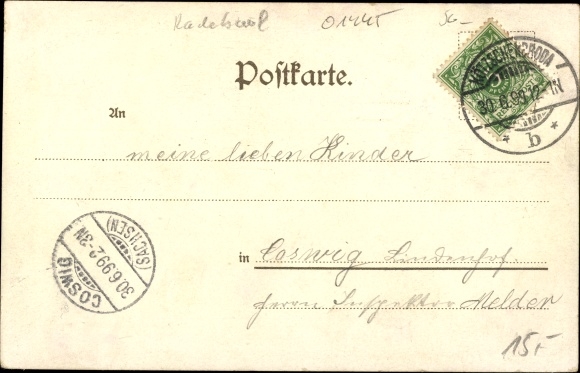 Radebeul 01445 50-
Postkarte.
KÖTZSCHENBRODA
30.6.99.12-1N
* b *
An
meine lieben Kinder
in Coswig Lindenhof.
Herrn Inspektor Melder
COSWIG
(SACHSEN)
30.6.99.2-3N
15,-